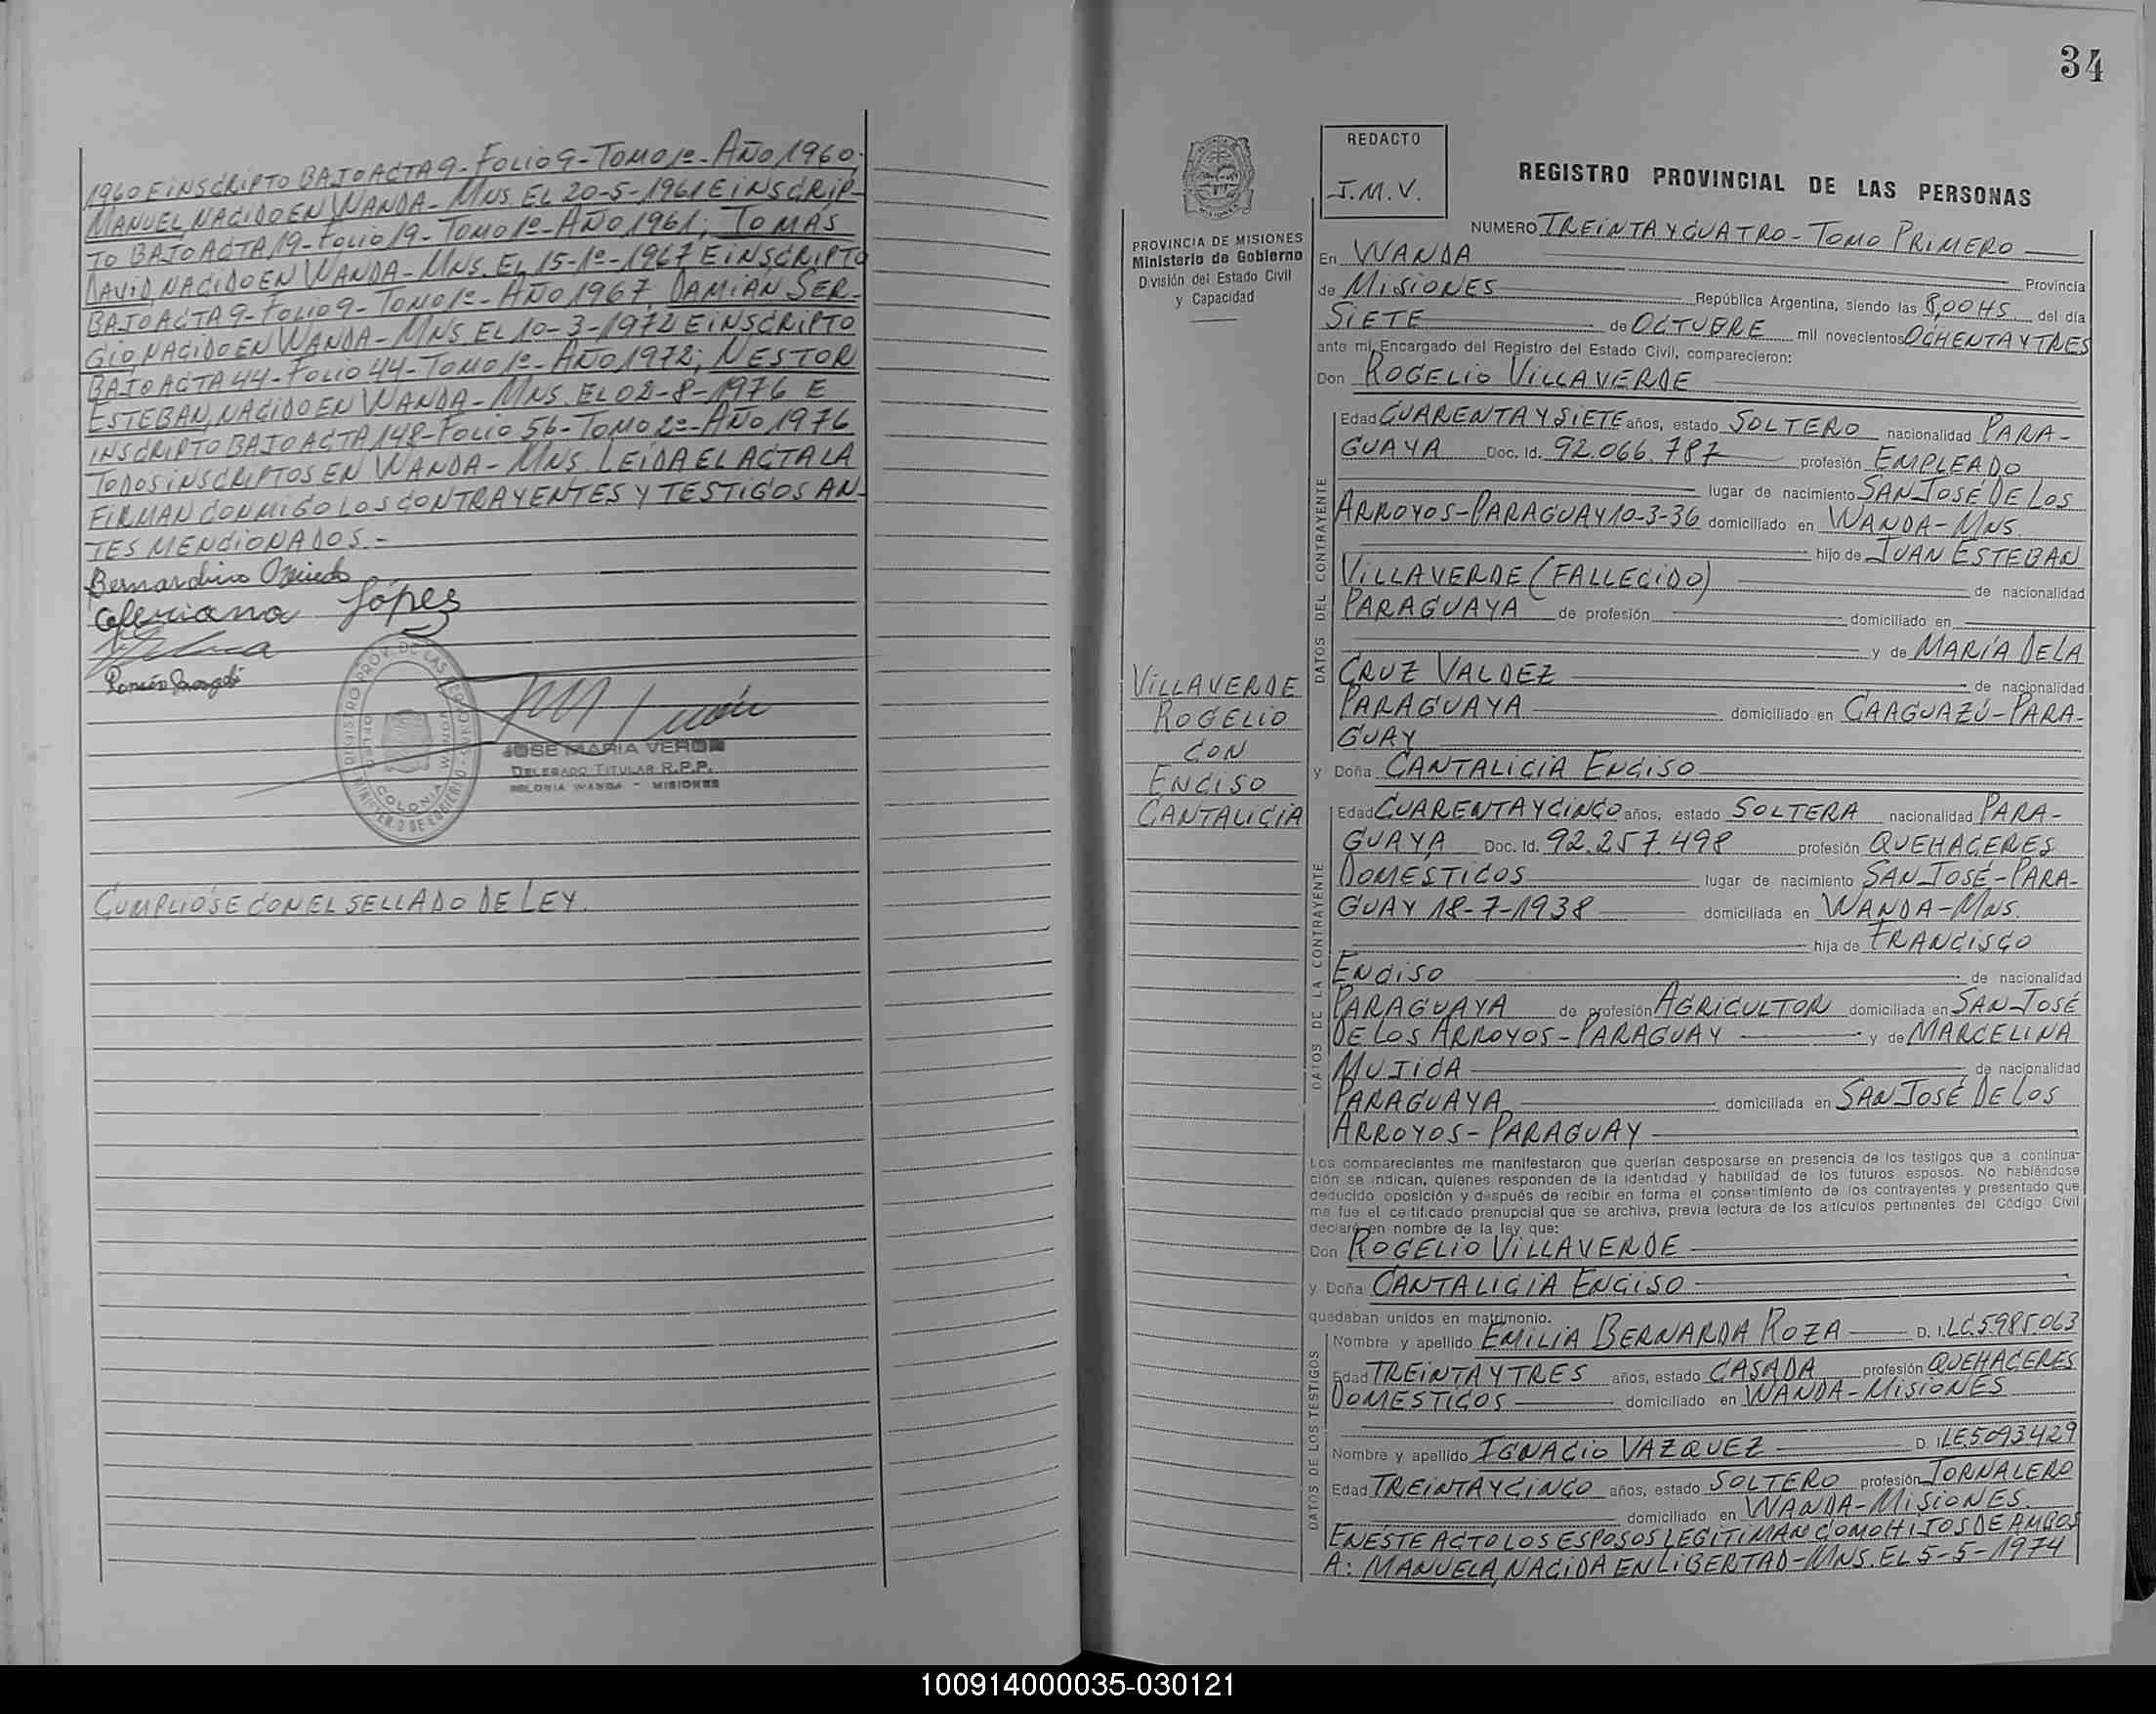 1960 E INSCRIPTO BAJO ACTA 9-FOLIO 9-TOMO 1º-AÑO 1960;
MANUEL, NACIDO EN WANDA-MNS. EL 20-5-1961 E INSCRIP-
TO BAJO ACTA 19-FOLIO 19-TOMO 1º-AÑO 1961; TOMAS
DAVID, NACIDO EN WANDA-MNS. EL 15-1º-1967 E INSCRIPTO
BAJO ACTA 9-FOLIO 9-TOMO 1º-AÑO 1967, DAMIÁN SER-
GIO, NACIDO EN WANDA-MNS. EL 10-3-1972 E INSCRIPTO
BAJO ACTA 44-FOLIO 44-TOMO 1º-AÑO 1972; NESTOR
ESTEBAN, NACIDO EN WANDA-MNS. EL 02-8-1976 E
INSCRIPTO BAJO ACTA 148-FOLIO 56-TOMO 2º-AÑO 1976
TODOS INSCRIPTOS EN WANDA-MNS. LEÍDA EL ACTA LA
FIRMAN CONMIGO LOS CONTRAYENTES Y TESTIGOS AN-
TES MENCIONADOS.-
Bernardino
López
REGISTRO PROV. DE LAS PERSONAS
COLONIA WANDA
MINISTERIO DE GOBIERNO
JOSE MARIA VERON
DELEGADO TITULAR R.P.P.
COLONIA WANDA - MISIONES
CUMPLIÓSE CON EL SELLADO DE LEY.
34
REDACTO
J.M.V.
REGISTRO PROVINCIAL DE LAS PERSONAS
PROVINCIA DE MISIONES
Ministerio de Gobierno
División del Estado Civil
y Capacidad
VILLAVERDE
ROGELIO
CON
ENCISO
CANTALICIA
NUMERO TREINTA Y CUATRO-TOMO PRIMERO
En WANDA Provincia
de MISIONES República Argentina, siendo las 8,00 HS del día
SIETE de OCTUBRE mil novecientos OCHENTA Y TRES
ante mi, Encargado del Registro del Estado Civil, comparecieron:
Don ROGELIO VILLAVERDE
DATOS DEL CONTRAYENTE
Edad CUARENTA Y SIETE años, estado SOLTERO nacionalidad PARA-
GUAYA Doc. Id. 92.066.787 profesión EMPLEADO
lugar de nacimiento SAN JOSÉ DE LOS
ARROYOS-PARAGUAY 10-3-36 domiciliado en WANDA-MNS.
hijo de JUAN ESTEBAN
VILLAVERDE (FALLECIDO) de nacionalidad
PARAGUAYA de profesión domiciliado en
y de MARÍA DE LA
CRUZ VALDEZ de nacionalidad
PARAGUAYA domiciliado en CAAGUAZÚ-PARA-
GUAY
y Doña CANTALICIA ENCISO
DATOS DE LA CONTRAYENTE
Edad CUARENTA Y CINCO años, estado SOLTERA nacionalidad PARA-
GUAYA Doc. Id. 92.257.498 profesión QUEHACERES
DOMÉSTICOS lugar de nacimiento SAN JOSÉ-PARA-
GUAY 18-7-1938 domiciliada en WANDA-MNS.
hija de FRANCISCO
ENCISO de nacionalidad
PARAGUAYA de profesión AGRICULTOR domiciliada en SAN JOSÉ
DE LOS ARROYOS-PARAGUAY y de MARCELINA
MUJICA de nacionalidad
PARAGUAYA domiciliada en SAN JOSÉ DE LOS
ARROYOS-PARAGUAY
Los comparecientes me manifestaron que querían desposarse en presencia de los testigos que a continua-
ción se indican, quienes responden de la identidad y habilidad de los futuros esposos. No habiéndose
deducido oposición y después de recibir en forma el consentimiento de los contrayentes y presentado que
me fue el certificado prenupcial que se archiva, previa lectura de los artículos pertinentes del Código Civil
declaré en nombre de la ley que:
Don ROGELIO VILLAVERDE
y Doña CANTALICIA ENCISO
quedaban unidos en matrimonio.
DATOS DE LOS TESTIGOS
Nombre y apellido EMILIA BERNARDA ROZA D. I. LC.5985.063
Edad TREINTA Y TRES años, estado CASADA profesión QUEHACERES
DOMESTICOS domiciliado en WANDA-MISIONES
Nombre y apellido IGNACIO VAZQUEZ D. I. LE.5093429
Edad TREINTA Y CINCO años, estado SOLTERO profesión JORNALERO
domiciliado en WANDA-MISIONES.
EN ESTE ACTO LOS ESPOSOS LEGITIMAN COMO HIJOS DE AMBOS
A: MANUELA, NACIDA EN LIBERTAD-MNS. EL 5-5-1974
100914000035-030121